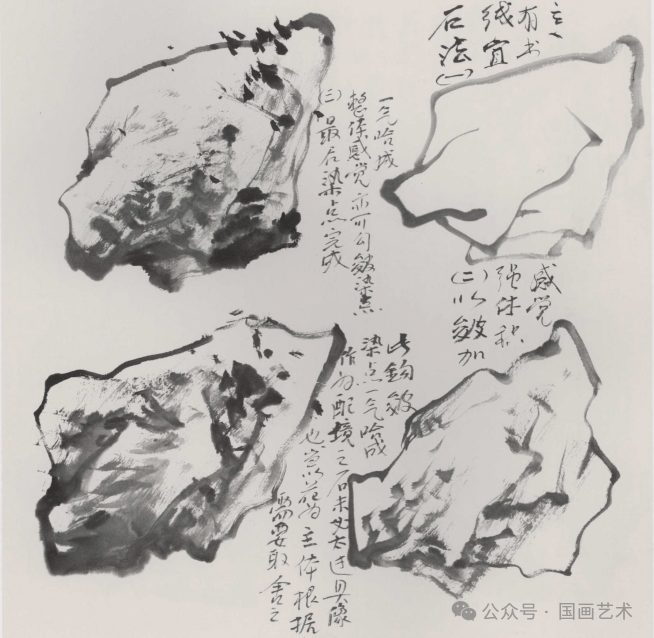 石法(一)
线宜
有书
(二)以皴加
强体积
感觉
(三)最后染点完成
整体感觉亦可勾皴染点
一气哈成
此钩皴
染点一气哈成
作为配境之石未必太过具像
也当以花为主体根据
需要取舍之
公众号·国画艺术